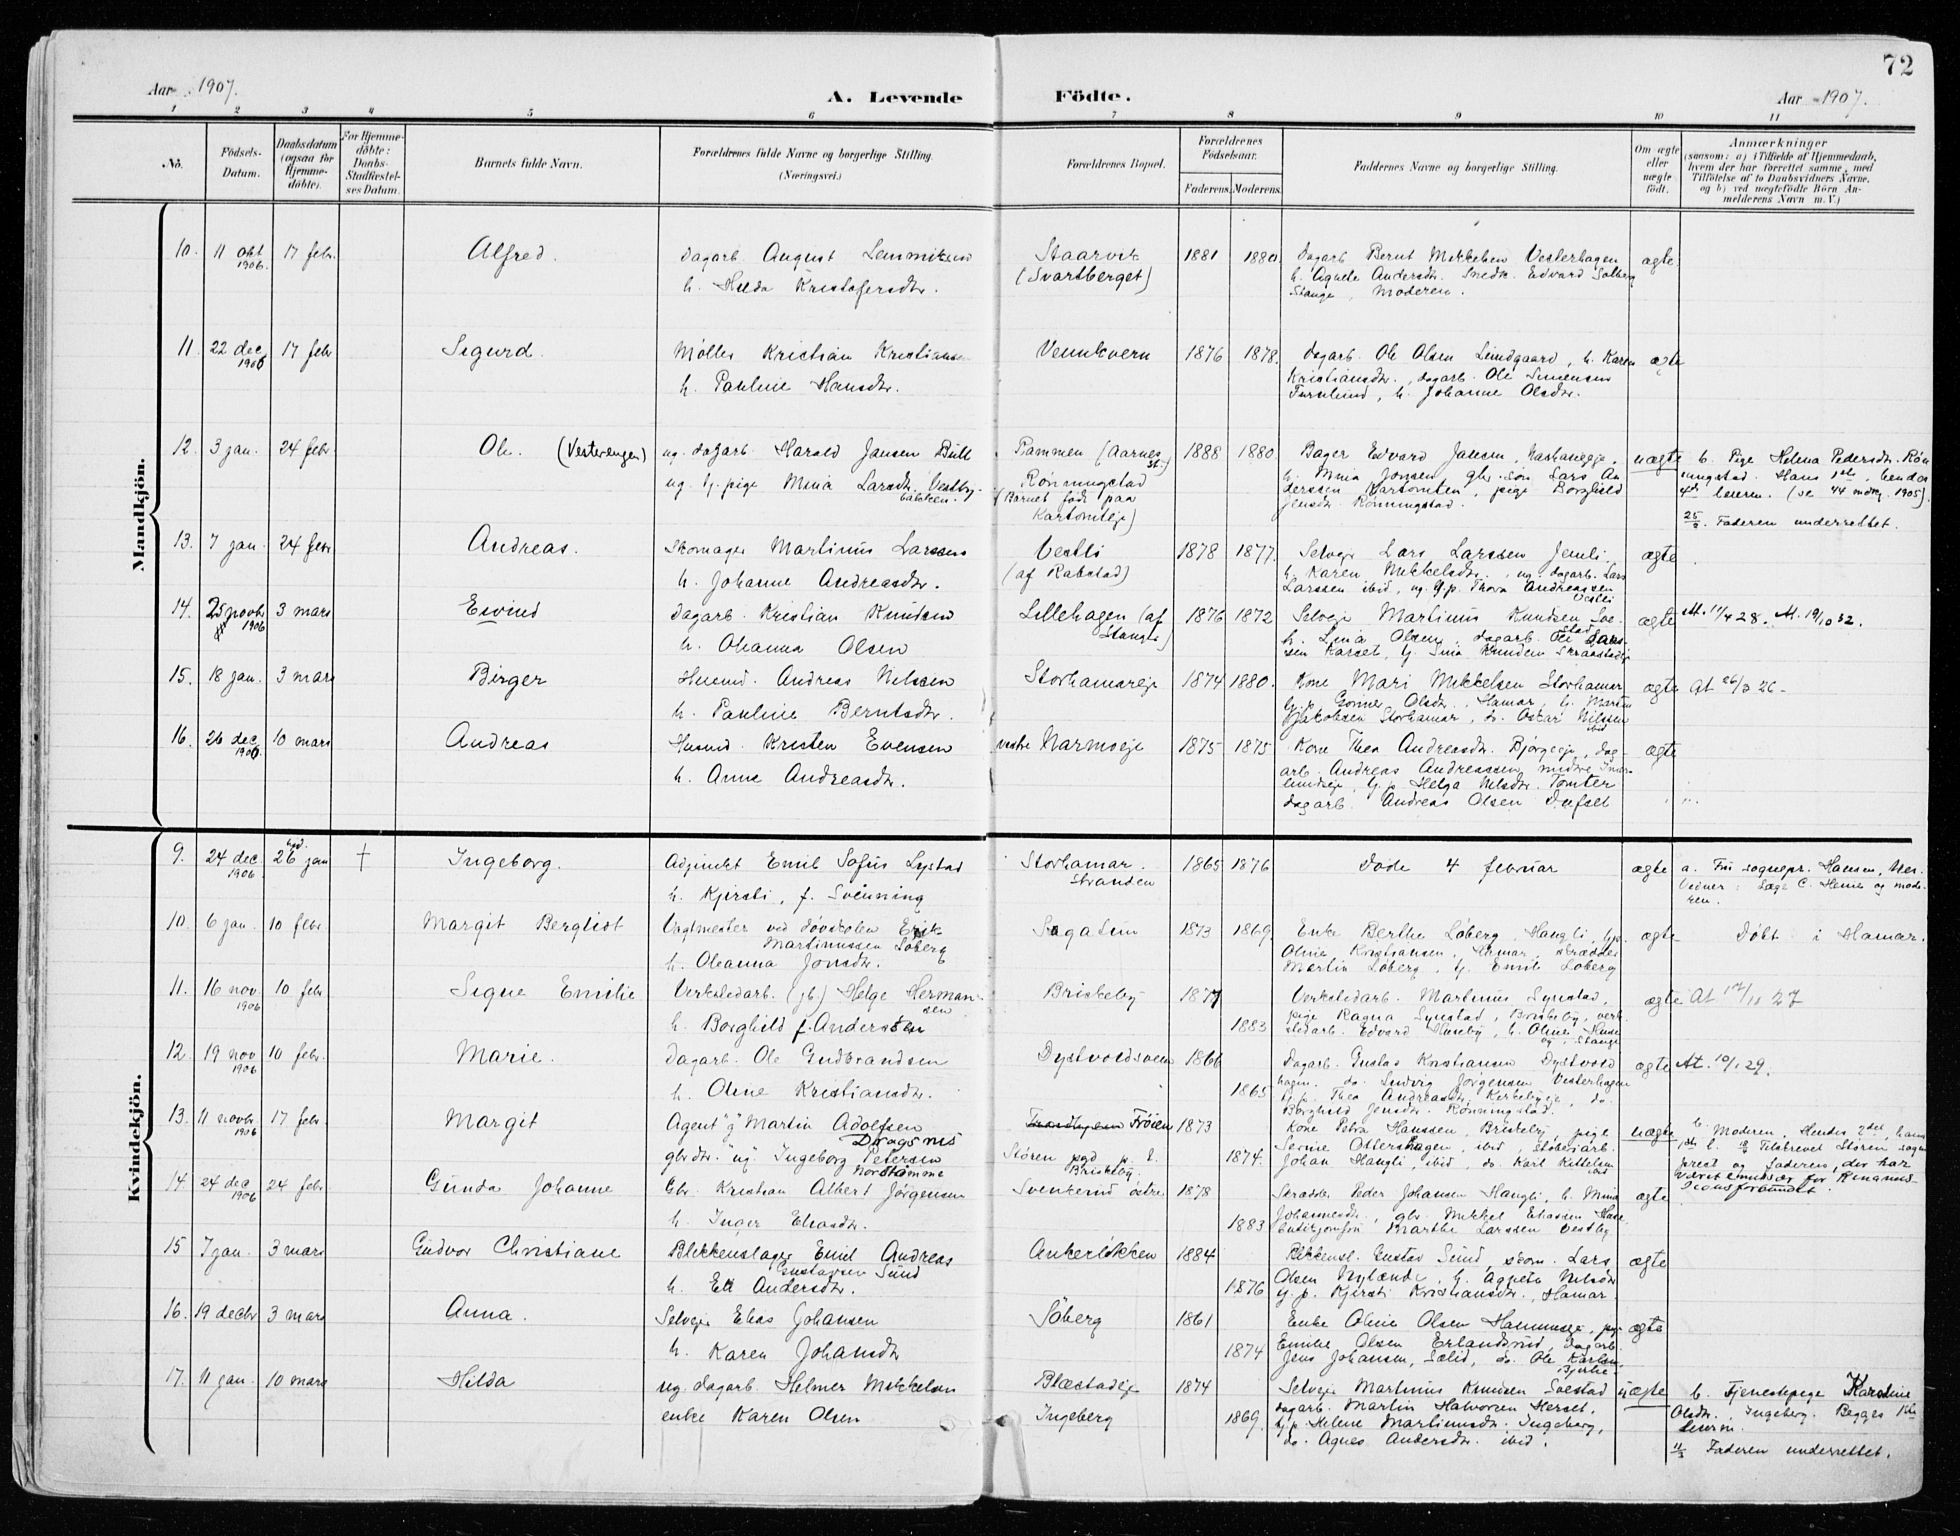 72
Aar 1907.
A. Levende Födte.
Aar 1907.
1 2 3 4 5 6 7 8 9 10 11
No.
Födsels-Datum.
Daabsdatum (ogsaa for Hjemme-döbte).
For Hjemme-döbte: Daabs-Stadfæstel-ses Datum.
Barnets fulde Navn.
Forældrenes fulde Navne og borgerlige Stilling.
(Næringsvei.)
Forældrenes Bopæl.
Forældrenes Födselsaar.
Faderens. Moderens.
Faddernes Navne og borgerlige Stilling.
Om ægte eller uægte födt.
Anmærkninger
(saasom: a) i Tilfælde af Hjemmedaab,
hvem der har forrettet samme, med
Tilföielse af to Daabsvidners Navne,
og b) ved uægtefödte Börn An-
melderens Navn m. V.)
Mandkjön.
10. 11 okt 1906. 17 febr. Alfred. Dagarb. August
h. Hilda Kristofersdtr.
Staarvik
(Svartberget)
1881 1880
Dagarb. Bernt Mikkelsen Vesterhagen
h. Agnete Andersdtr. Snedk. Edvard Solberg
Stange, Moderen.
ægte
11. 22 dec 1906 17 febr Sigurd. Møller Kristian Kristiansen
h. Pauline Hansdtr.
Vennkvern 1876 1878.
Dagarb. Ole Olsen Lundgaard, h. Karen
Kristiansdtr., dagarb. Ole Simensen
Furulund, h. Johanne Olsdtr.
ægte
12. 3 jan. 24 febr. Ole. (Vesterengen) ug. dagarb. Harald Jansen Bull
ug. tj. pige Mina Larsdtr. Vestby-
bakken.
Pammen (Aarnes st.)
Rønningstad
(Barnet født paa
Kartomteje)
1888 1880
Bager Edvard Jansen,
h. Mina Jonsen gbr. søn Lars An
derssen Kartomten, pige Borghild
Jensdr. Rønningstad.
uægte
b. Pige Helena Pedersdtr. Røn
ningstad. Hans 1ste, hendes
4de leieren. (se 44 mdkj. 1905).
25/2. Faderen underrettet.
13. 7 jan. 24 febr Andreas. Skomager Martinus Larssen
h. Johanne Andreasdtr.
Vestli
(af Rabstad)
1878 1877.
Selvejer Lars Larssen Jemli
h. Karen Mikkelsdtr., ug. dagarb. Lars
Larssen ibid, ug. tj.p. Thora Andreassen
Vestli
ægte
14. 25 novbr 1906 3 mars Eivind dagarb. Kristian Knudsen
h. Oleanna Olsen
Lillehagen (af
Stangli)
1876 1872
Selvejer Martinus Knudsen Soe-
stad
h. Lina Olsen, dagarb. Ole Lars-
sen Karset, tj. Smia Knudsen Skraastadeje
ægte
At. 11/4 28. At. 19/10 32.
15. 18 jan. 3 mars Birger Husmd. Andreas Nilssen
h. Pauline Berntsdtr.
Storhamareje 1874 1880.
Kone Mari Mikkelsen Storhamar
tj.p. Gonner Olsdtr. Hamar, tj. Martin
Jakobsen Storhamar, do. Oskar Nilssen
ibid
ægte
At 26/3 26.
16. 26 dec 1906 10 mars Andreas Husmd. Kristen Evensen
h. Anne Andreasdtr.
vestre Narmoeje 1875 1875
Kone Thea Andreasdtr. Bjørgeeje, dag-
arb. Andreas Andreassen nedre Imer-
lundseje, tj.p. Helga Nilsdtr. Tomter
dagarb. Andreas Olsen Dufset
ægte
Kvindekjön.
9. 24 dec 1906. hjd. 26 jan † Ingeborg. Adjunkt Emil Sofus Lystad
h. Kjersti, f. Svenning
Storhamar.
Stranden
1865 1876
Døde 4 februar
ægte
a. Fru sogepr. Hansen, Nes.
Vidner: Læge C. Heme og mode-
ren.
10. 6 jan. 10 febr. Margit Berglist Vagtmester ved døvskolen Erik
Martinussen Løberg
h. Oleanna Jonsdtr.
Sagatun 1873 1869.
Enke Berthe Løberg, Hangli, tjp.
Oline Kristiansen, Hamar, skrædder
Martin Løberg, tj. Emil Løberg
ægte
Døbt i Hamar.
11. 16 nov 1906 10 febr Signe Emilie Verkstedarb. (jb) Helge Herman-
sen
h. Borghild f. Anderssen
Briskeby 1877
1883
Verkstedarb. Martinus Synstad,
pige Ragna Synstad, Briskeby, verk
stedarb. Edvard Huseby, h. Oline Huse
by, Stange
ægte
At 17/11 27
12. 19 nov 1906 10 febr. Marie. Dagarb. Ole Gudbrandsen
h. Oline Kristiansdtr.
Dystvoldsveen 1866
1865
Dagarb. Gustav Kristiansen Dystvold
hagen. do. Ludvig Jørgensen Vesterhagen
tj.p. Thea Andreasdtr. Kirkebyeje, do.
Borghild Jensdtr. Rønningstad.
ægte
At. 10/1 29.
13. 11 novbr 1906 17 febr. Margit Agent "g" Martin Adolfsen
Dragsnæs
gbrdtr. "ug" Ingeborg Petersen
Norstämme
Frøien
Støren pgd p. t.
Briskeby.
1873
1874.
Kone Petra Hanssen, Briskeby, pige
Serine Ottershagen, ibid, støberiarb.
Johan Hangli, ibid, do. Karl Kittelsen
ibid
uægte
b. Moderen. Hendes 2det, hans
Tilskrevet Støren sogne
prest og faderen, der har
været emissær for Kinamis-
sionsforbundet.
14 24 dec 1906 24 febr. Gunda Johanne Gbr. Kristian Albert Jørgensen
h. Inger Eliasdtr.
Svenkerud østre 1878
1883
Skrædder Peder Johansen Hangli, h. Mina
Johannesdtr., gbr. Mikkel Eliassen Huse
butikjomfru Marthe Larssen Vestby
ægte
15 7 jan. 3 mars Gudvor Christiane Blikkenslager Emil Andreas
Gustavsen Sund
h. Eli Andersdtr.
Ankerløkken 1884
1876
Blikkensl. Gustav Sund, skom. Lars
Olsen Nylænde, h. Agnete Nilsdtr
tj. p. Kjersti Kristiansdtr., Hamar.
ægte
16. 19 decbr 3 mars Anna. Selvejer Elias Johansen
h. Karen Johansdtr
Söberg 1861
1874
Enke Oline Olsen Hommeeje, pige
Emilie Olsen Erlandsrud, Dagarb.
Jens Johansen, Sælid, do. Ole Karlsen,
ægte
17. 11 jan. 10 mars Hilda ug. dagarb. Helmer Mikkelsen
enke Karen Olsen
Blæstadeje
Ingeberg
1874
1869.
Selvejer Martinus Knudsen Soestad
dagarb. Martin Halvorsen Herset,
tj.p. Helene Martinusdtr. Ingeberg,
do. Agnes Andersdtr. ibid.
uægte
b. Tjenestepige Karoline
Olsdtr., Ingeberg. Begges 1ste
leierm.
11/3 Faderen underrettet.